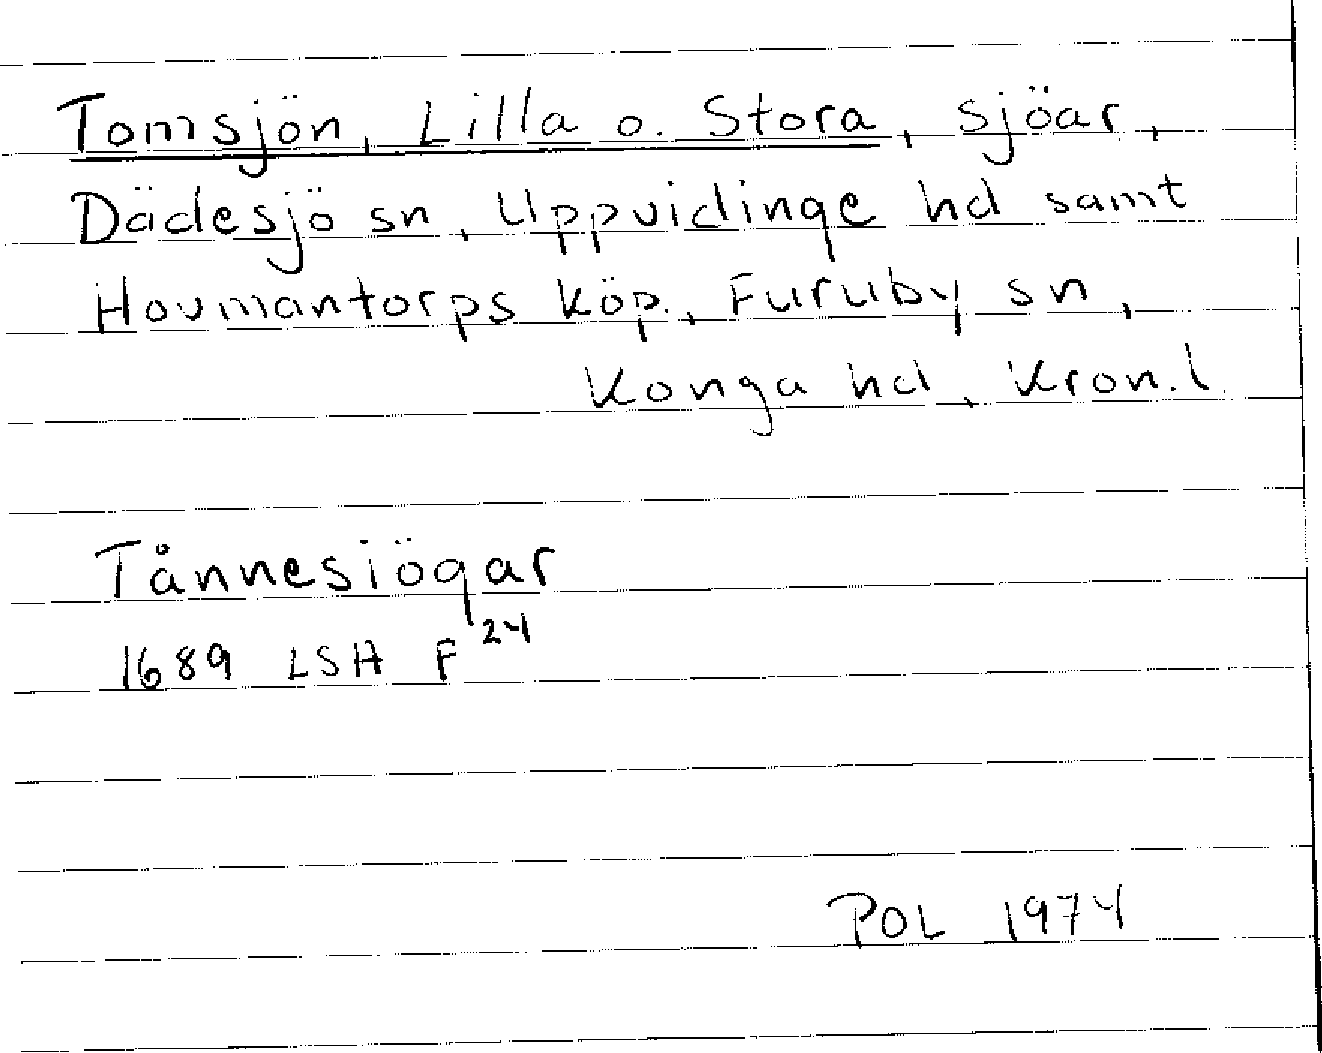 Tomsjön, Lilla o. Stora, sjöar,
Dädesjö sn, Uppvidinge hd samt
Hovmantorps köp., Furuby sn,
Konga hd, Kron.l.
Tånnesiögar
1689 LSH F 24
POL 1974